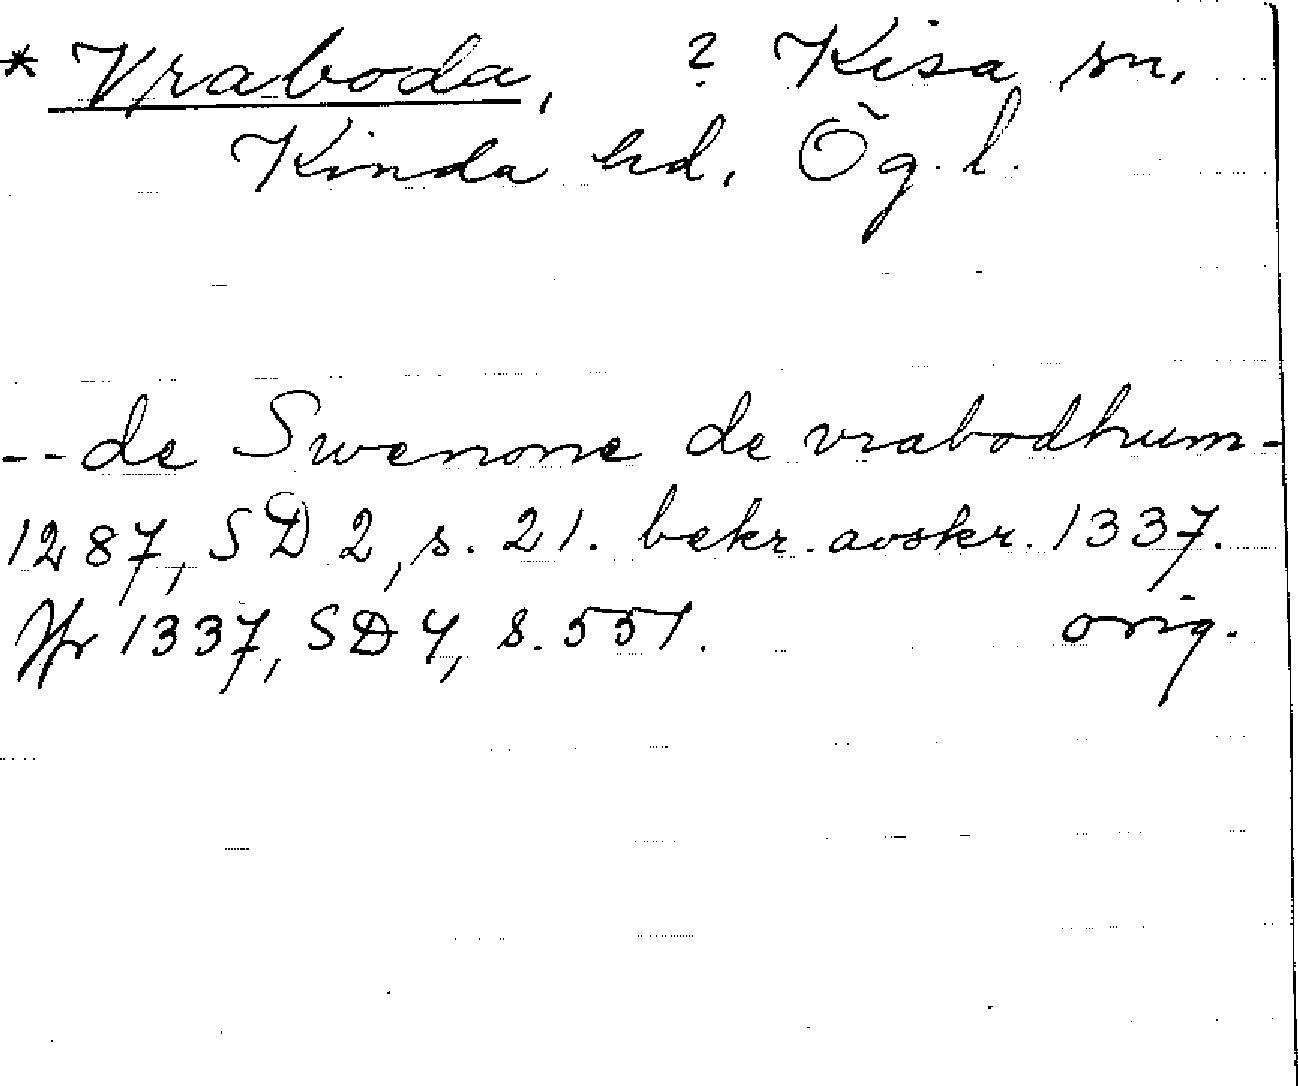 * Vraboda, ? Kisa sn.
Kinda hd, Ög. l.
-- de Swenone de vrabodhum -
1287, SD 2, s. 21. bekr. avskr. 1337.
Jfr 1337, SD 4, s. 551. orig.